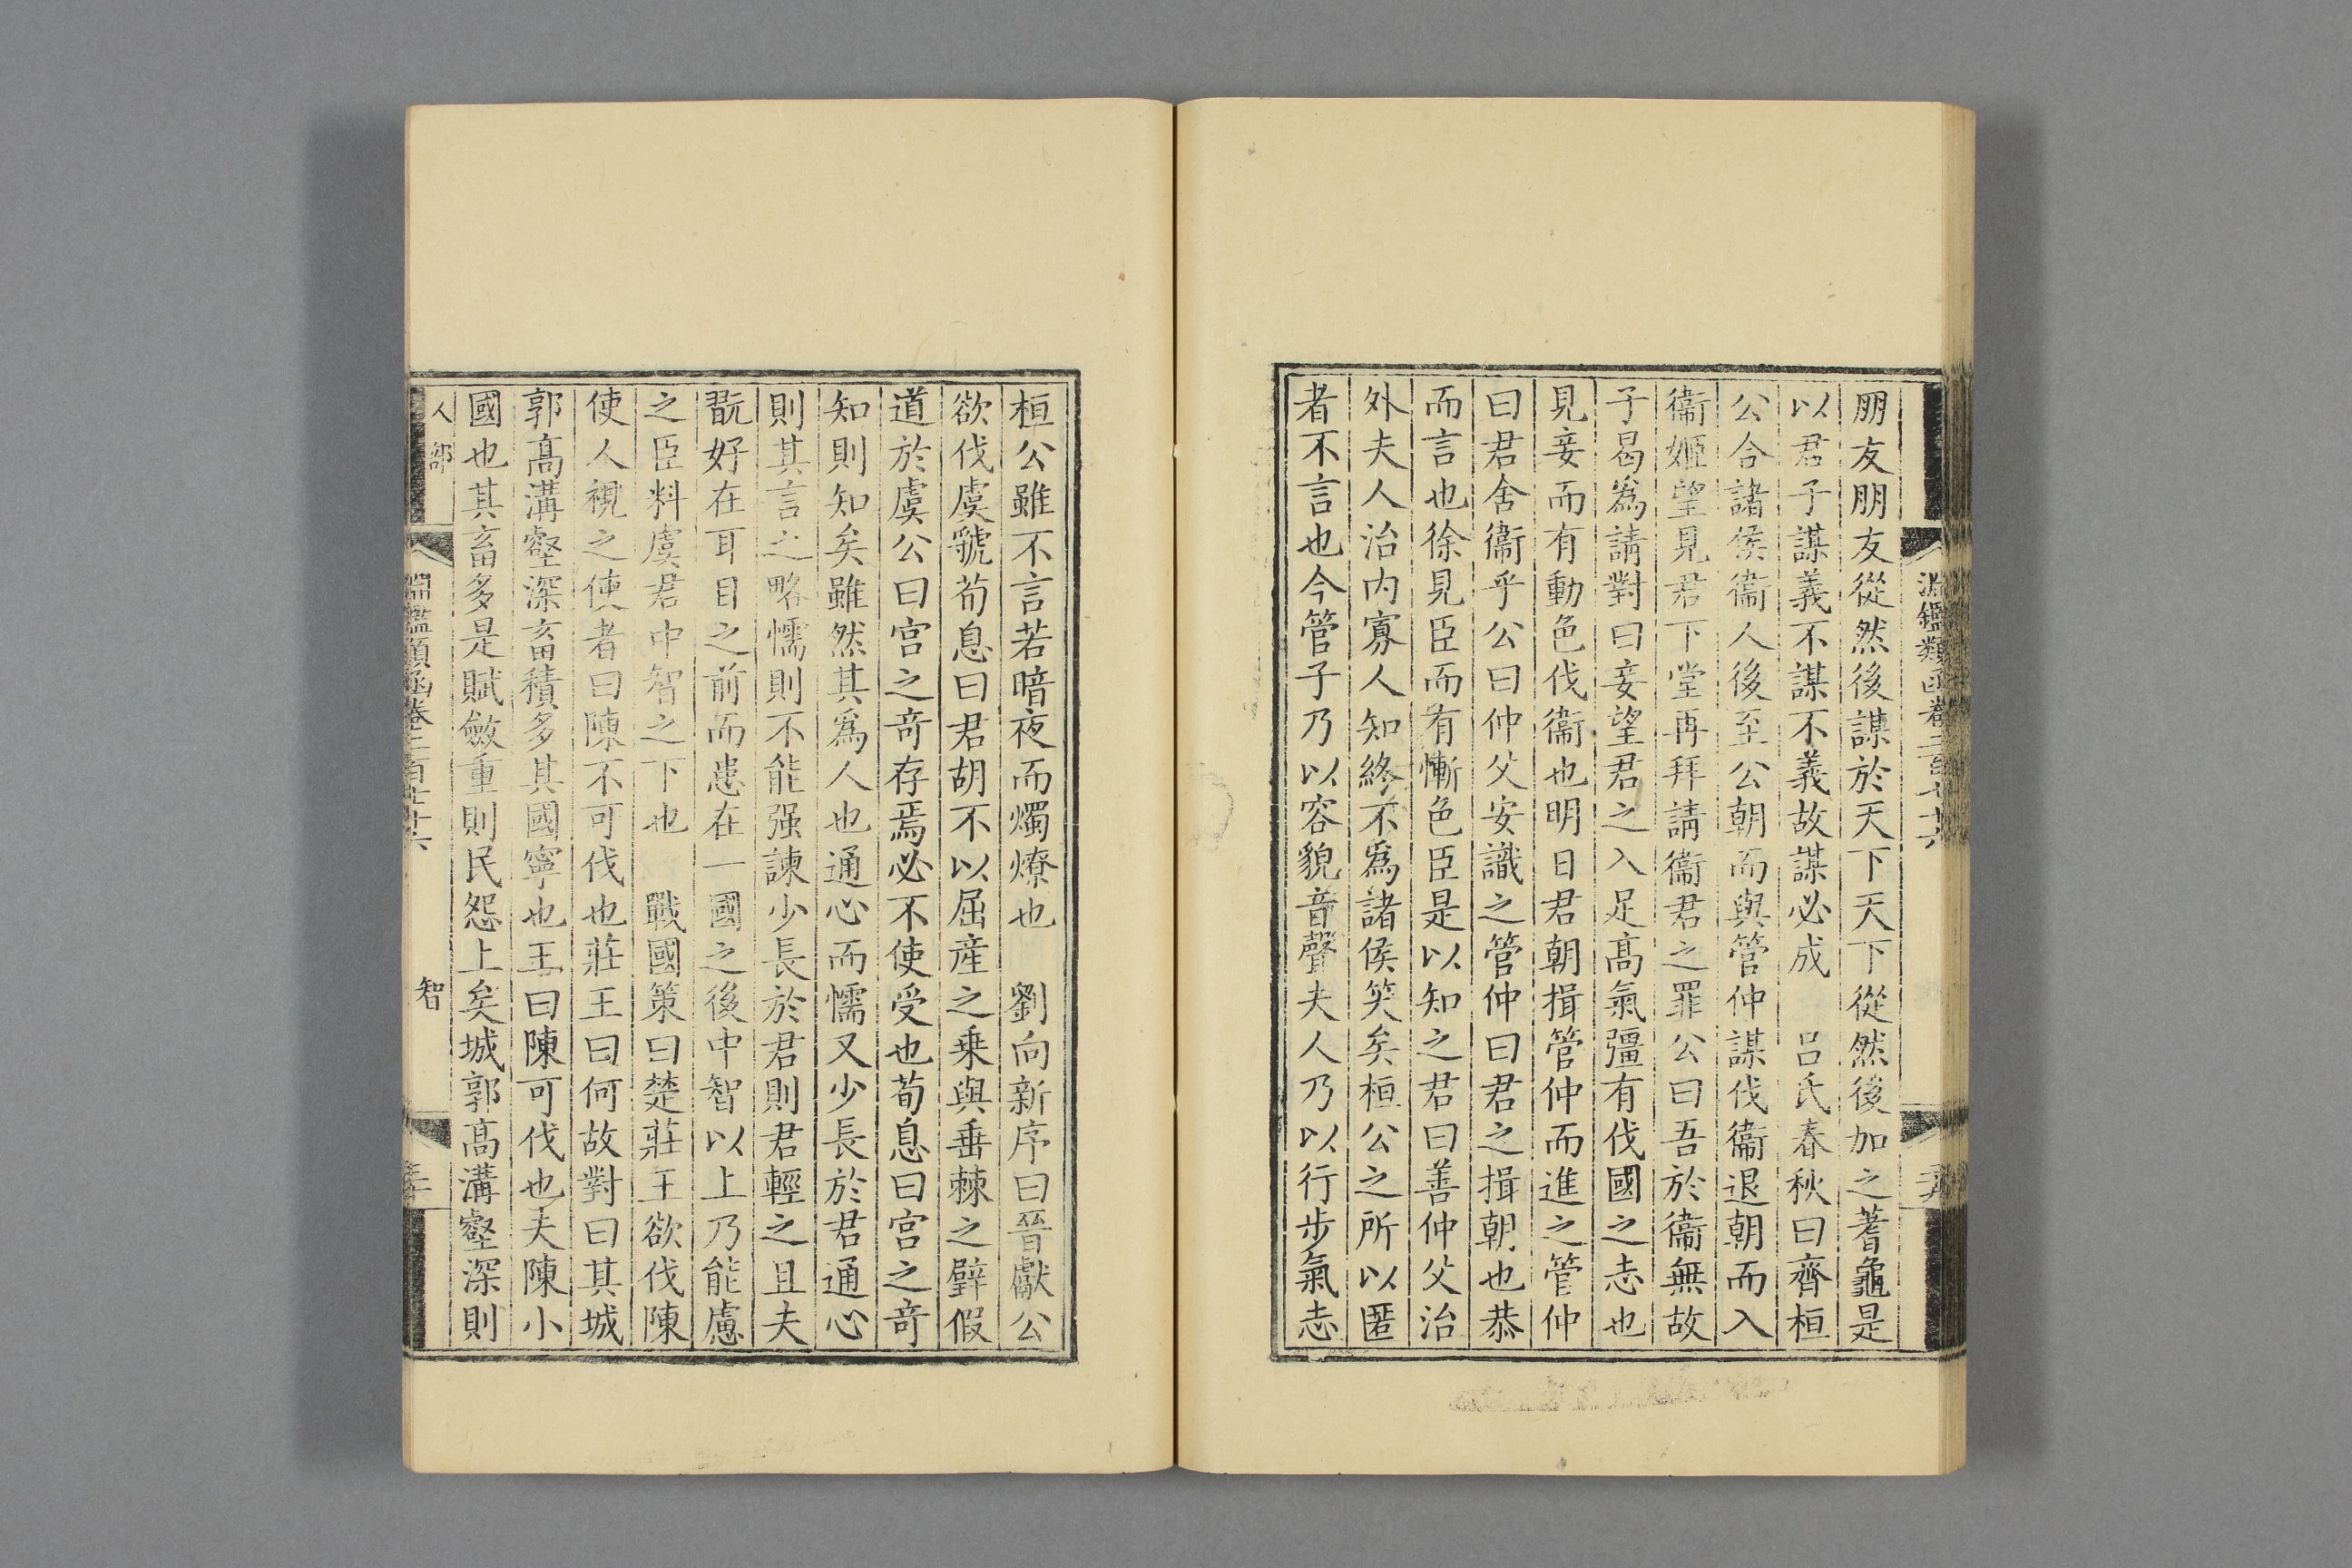 朋友朋友從然後謀於天下天下從然後加之蓍龜是
以君子謀義不謀不義故謀必成　呂氏春秋曰齊桓
公合諸侯衞人後至公朝而與管仲謀伐衞退朝而入
衞姬望見君下堂再拜請衞君之罪公曰吾於衞無故
子曷爲請對曰妾望君之入足髙氣彊有伐國之志也
見妾而有動色伐衞也明日君朝揖管仲而進之管仲
曰君舍衞乎公曰仲父安識之管仲曰君之揖朝也恭
而言也徐見臣而有慚色臣是以知之君曰善仲父治
外夫人治内寡人知終不爲諸侯笑矣桓公之所以匿
者不言也今管子乃以容貌音聲夫人乃以行步氣志
桓公雖不言若暗夜而燭燎也　劉向新序曰晉獻公
欲伐虞虢荀息曰君胡不以屈産之乗與垂棘之璧假
道於虞公曰宫之竒存焉必不使受也荀息曰宫之竒
知則知矣雖然其爲人也通心而懦又少長於君通心
則其言之略懦則不能强諫少長於君則君輕之且夫
翫好在耳目之前而患在一國之後中智以上乃能慮
之臣料虞君中智之下也　戰國策曰楚莊王欲伐陳
使人視之使者曰陳不可伐也莊王曰何故對曰其城
郭髙溝壑深畜積多其國寧也王曰陳可伐也夫陳小
國也其畜多是賦斂重則民怨上矣城郭髙溝壑深則
人部
淵鑑類函卷二百七十六
智